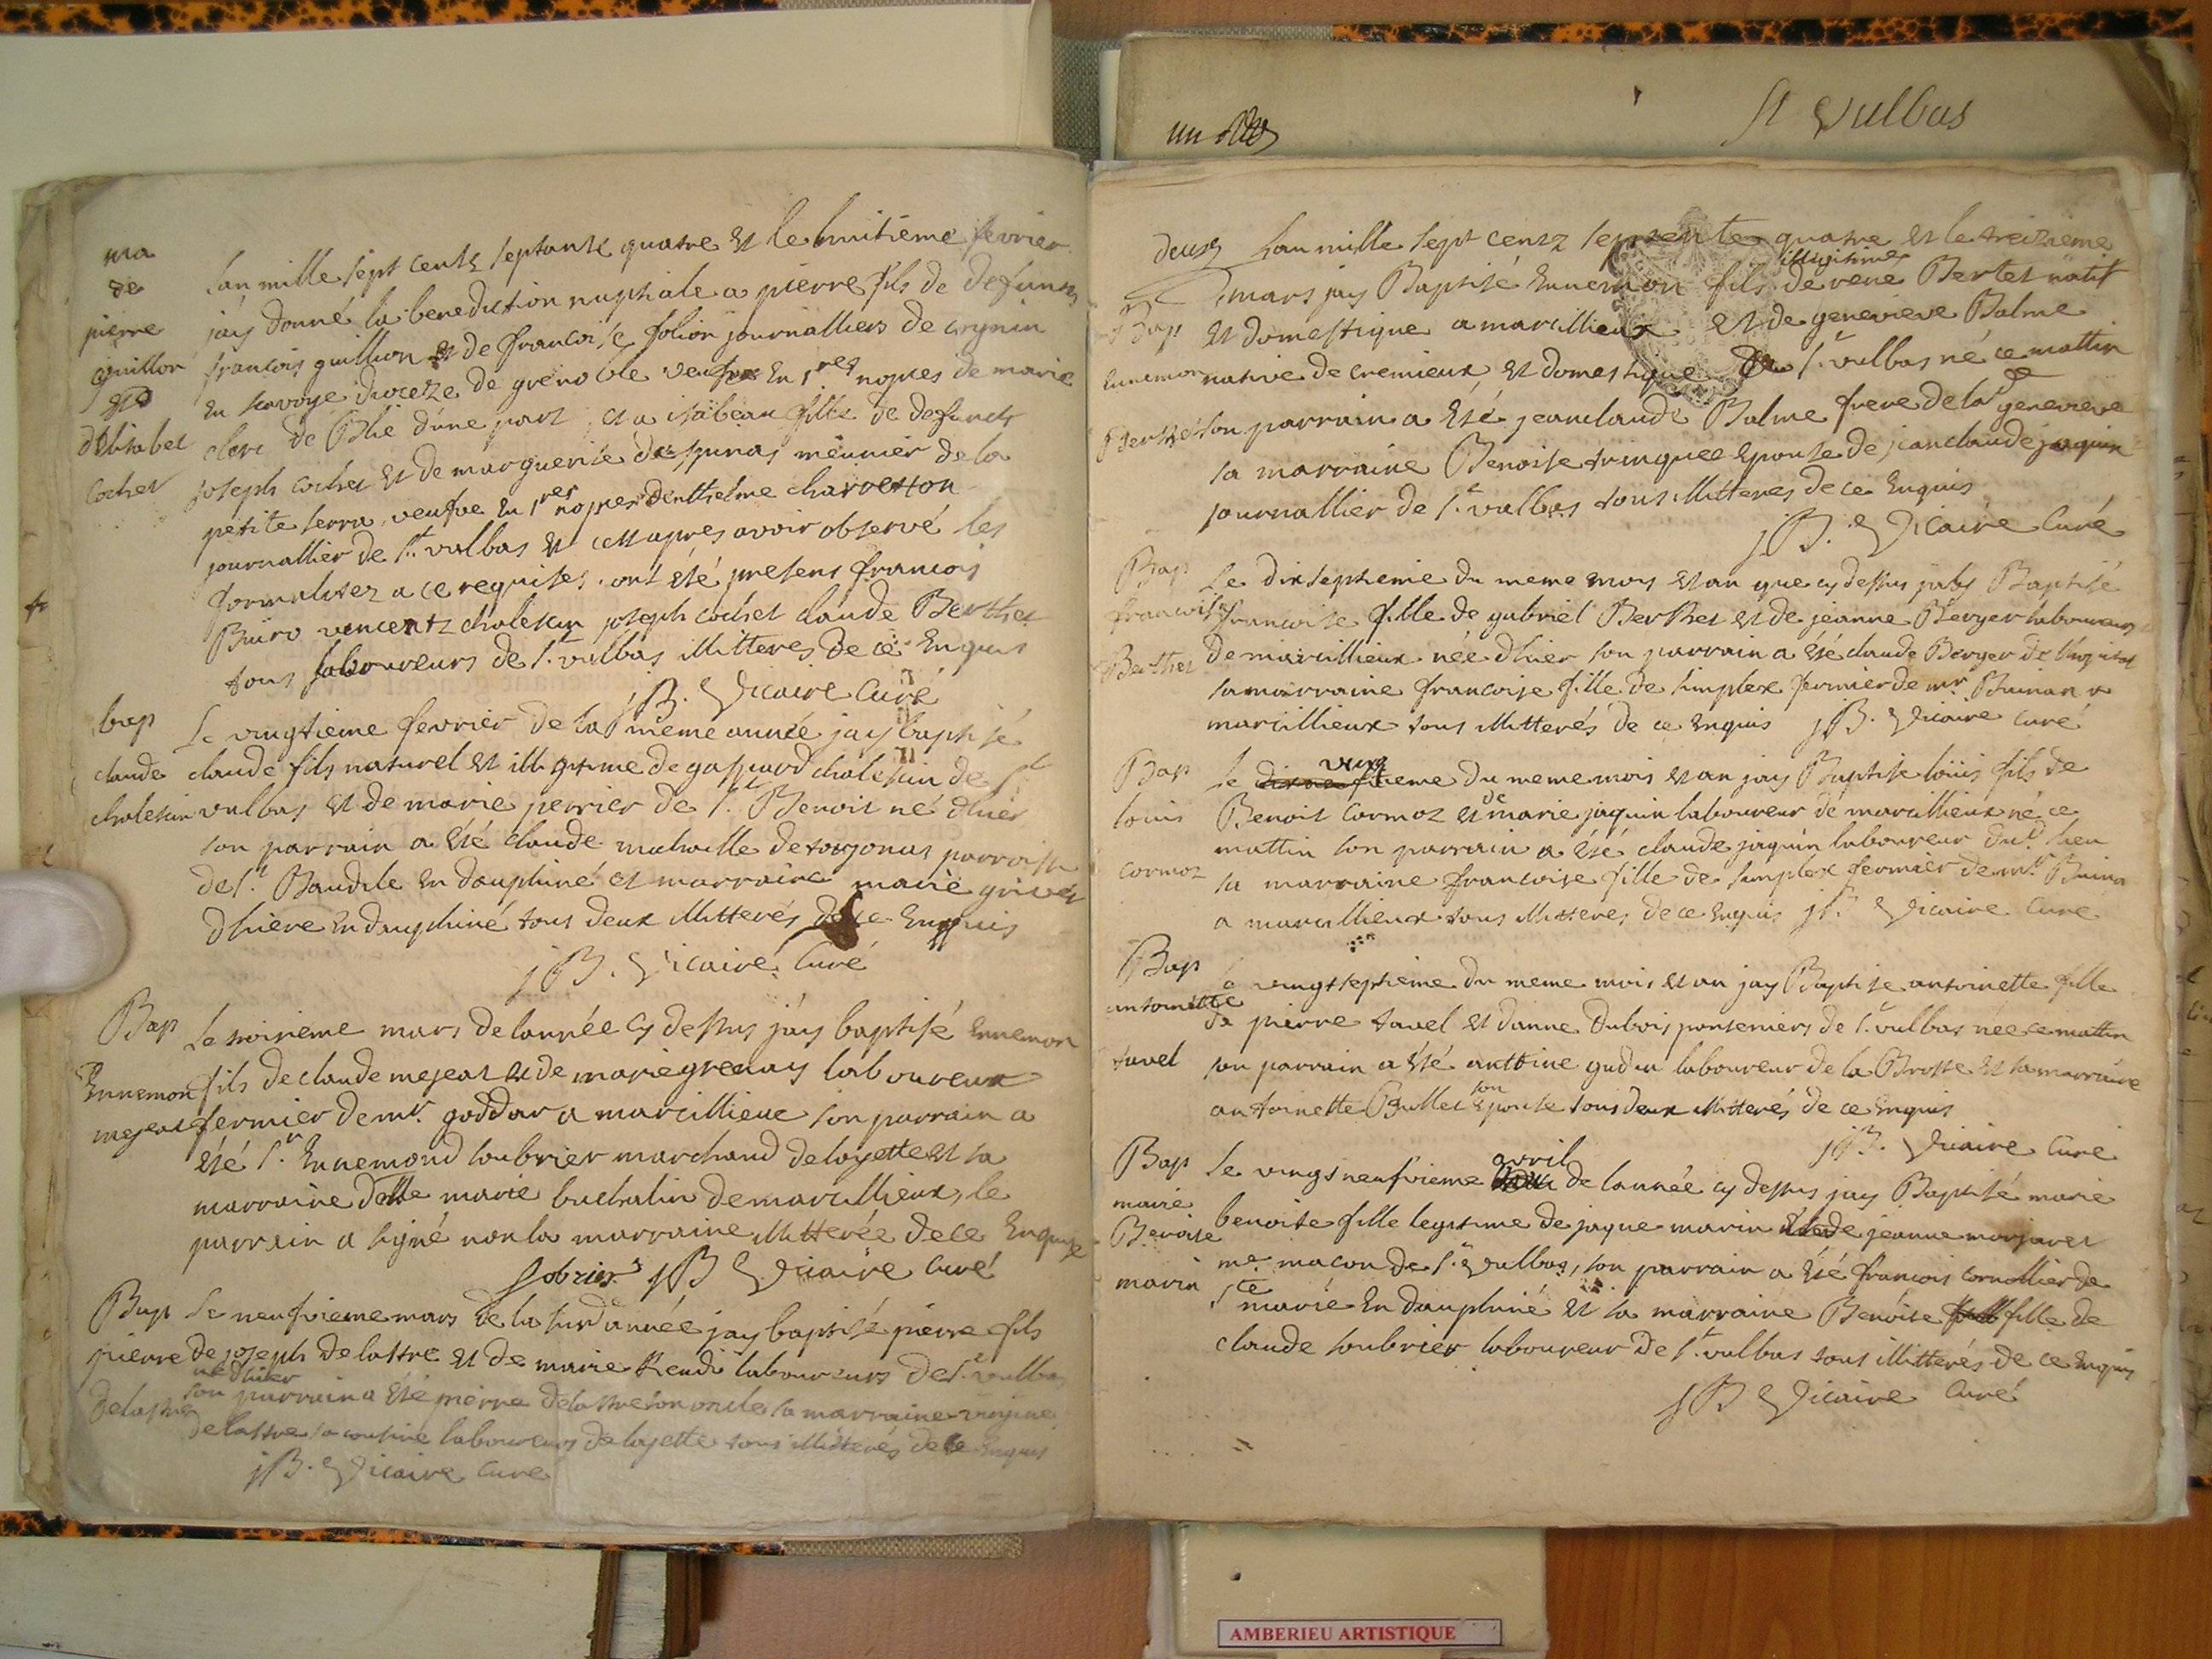 ma
de
pierre
guillon
et
d'elisabet
Cochet
Lan mille sept cents septante quatre et le huitieme fevrier
jay donné la benediction nuphiale a pierre fils de defunts
francois guillion et de francoise folion journalliers de
en savoye dioceze de grenoble veufve en 1res nopces de marie
clerc de Blie dune part et a isabeau fille de defunts
joseph cochet et de marguerite despinas meunier de la
petite serra, veufve en 1res nopces danthelme charveton
journallier de St vulbas et ce apres avoir observé les
formalitez a ce requises. ont été presens francois
Buiro vincentz cholesin joseph cochet claude Berthet
tous laboureurs de St vulbas illitteres de ce enquis
JB. Vicaire Curé
bap
claude
cholesin
Le vingtieme fevrier de la meme année jay baptisé
claude fils naturel et illegitime de gaspard cholesin de St
vulbas et de marie perrier de St Benoit né dhier
son parrain a été claude de torjonas parroisse
de St Baudile en dauphiné et marraine marie grivet
dhiere en dauphiné tous deux illitterés de ce enquis
JB. Vicaire Curé
Bap
Ennemon
mejeat
Le troisieme mars de lannée cy dessus jáy baptisé ennemon
fils de claude mejeat et de marie grenay laboureux
fermier de mr. goddar a marcillieux son parrain a
été Sr. Ennemond soubrier marchand de loyette et sa
marraine dlle marie buchalin de marcillieux, le
parrain a signé non la marraine illitterée de ce enquise
Sobrier JB Vicaire Curé
Bap
pierre
delastre
Le neufvieme mars de la susd année jay baptisé pierre fils
de joseph delastre et de marie Rendi laboureurs de St vulbas
né dhier
son parrain a été pierre delastre son oncle sa marraine
delastre sa cousine laboureurs de loyette tous illitterés de ce enquis
JB. Vicaire Cure
un
St Vulbas
deux
Bap
Ennemon
Berthet
Lan mille sept centz septente quatre et le treizieme
illegitime
mars jay Baptisé Ennemon fils de rene Bertet natif
et domestique a marcillieux et de genevieve Balme
native de cremieux et domestique de St vulbas né ce mattin
son parrain a été jeanclaude Balme frere de la de genevieve
sa marraine Benoite trinquee epouse de jeanclaude jaquin
journallier de St vulbas tous illitteres de ce enquis
JB. Vicaire Curé
Bap
francoise
Berthet
Le dixseptieme du meme mois et an que cy dessus jaby Baptisé
francoise fille de gabriel Berthet et de jeanne Berger laboureurs
de marcillieux née dhier son parrain a été claude Berger de
sa marraine francoise fille de simplex fermier de mr. Buinan a
marcillieux tous illitterés de ce enquis JB. Vicaire Curé
Bap
louis
cormoz
ving
Le tieme du meme mois et an jay Baptisé loüis fils de
Benoit Cormoz et de marie jaquin laboureur de marcillieux né ce
mattin son parrain a été claude jaquin laboureur dud. lieu
sa marraine francoise fille de simplex fermier de mr. Buina
a marcillieux tous illitteres de ce enquis JB Vicaire Cure
Bap
antoinette
tavel
Le vingtseptieme du meme mois et an jay Baptisé antoinette fille
de pierre tavel et danne dubois ponteniers de St vulbas née ce mattin
son parrain a été anttoine gudin laboureur de la Brosse et sa marraine
antoinette Bullet son epouse tous deux illitterés de ce enquis
JB. Vicaire Curé
Bap
marie
Benoite
marin
avril
Le vingtneufvieme de lannée cy dessus jay Baptisé marie
benoite fille legitime de jaque marin et de jeanne monjaret
me macon de St vulbas, son parrain a été francois cornollier de
Ste marie en dauphiné et sa marraine Benoite fille de
claude soubrier laboureur de St vulbas tous illitterés de ce enquis
JB Vicaire Curé
AMBERIEU ARTISTIQUE